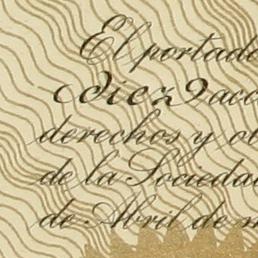 El portado
diez acc
derechos y o
de la Sociedad
de Abril de m